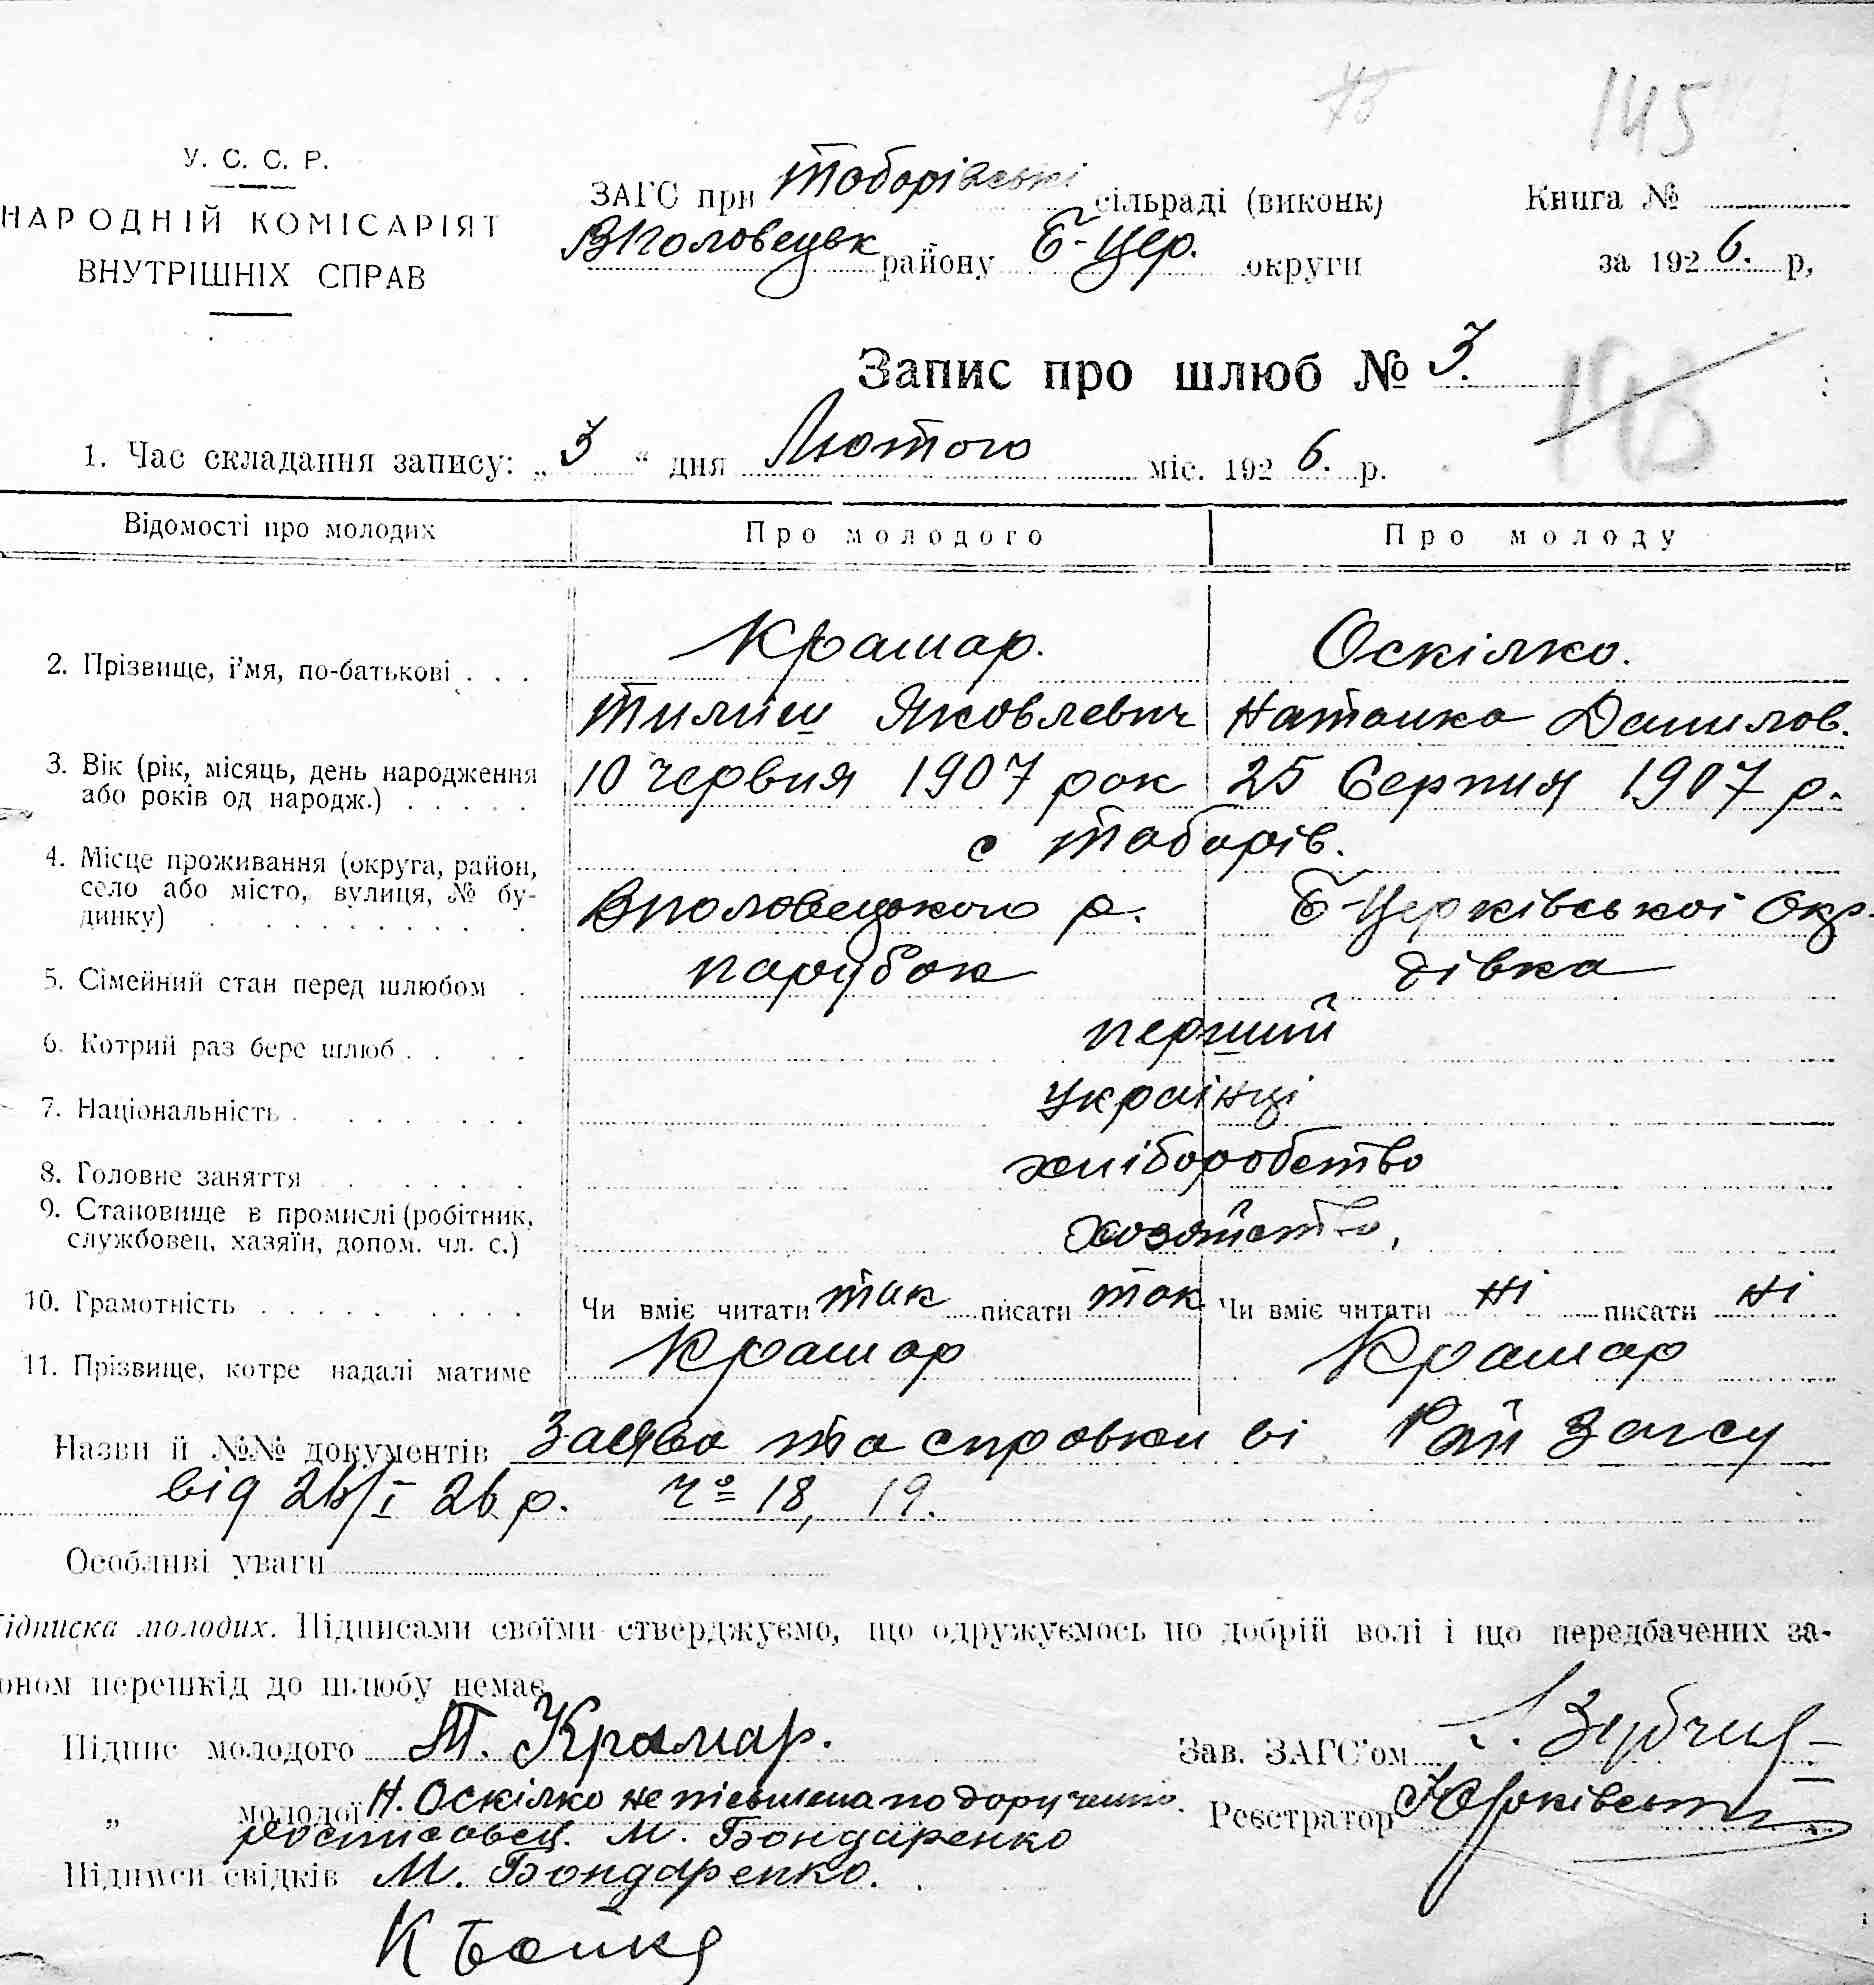 145
У. С. С. Р.
НАРОДНІЙ КОМІСАРІЯТ
ВНУТРІШНІХ СПРАВ
ЗАГС при Таборівські сільраді (виконк)
Вполовецьк району Б-Цер. округи
Книга №
за 1926. р,
Запис про шлюб № 3.
193
1. Час складання запису: „3“ дня Лютого міс. 1926. р.
Відомості про молодих Про молодого Про молоду
2. Прізвище, і'мя, по-батькові . . . Крамар. Оскілко.
Тиміш Яковлевич Наталка Данилов.
3. Вік (рік, місяць, день народження або років од народж.) . . . . . 10 червня 1907 рок 25 Серпня 1907 р.
4. Місце проживання (округа, район, село або місто, вулиця, № будинку) с Таборів.
Вполовецького р. Б-Церківської Окр.
5. Сімейний стан перед шлюбом . парубок дівка
6. Котрий раз бере шлюб . . . . перший
7. Національність . . . . . . . українці
8. Головне заняття . . . . . . хліборобство
9. Становище в промислі (робітник, службовец, хазяїн, допом. чл. с.) хозяйство,
10. Грамотність . . . . . . . . . Чи вміє читати так писати так Чи вміє читати ні писати ні
11. Прізвище, котре надалі матиме Крамар Крамар
Назви й №№ документів Заява та справки ві Рай Загсу
від 26/I 26 р. чº 18, 19.
Особливі уваги
ідписка молодих. Підписами своїми стверджуємо, що одружуємось по добрій волі і що передбачених за-
оном перешкід до шлюбу немає
Підпис молодого Т. Крамар.
Зав. ЗАГС'ом
„ молодої Н. Оскілко не письмена по доручению
росписовец. М. Бондаренко
Реєстратор
Підписи свідків М. Бондаренко.
К